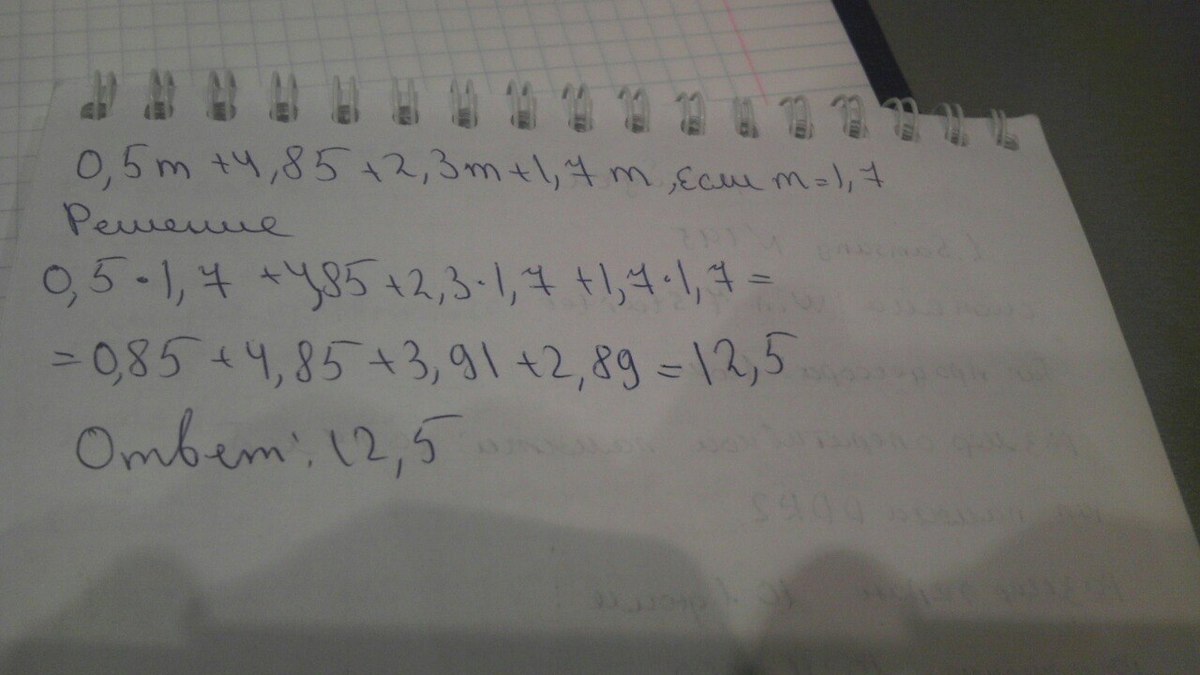 0,5m+4,85+2,3m+1,7m, если m=1,7
Решение
0,5·1,7+4,85+2,3·1,7+1,7·1,7=
=0,85+4,85+3,91+2,89=12,5
Ответ: 12,5